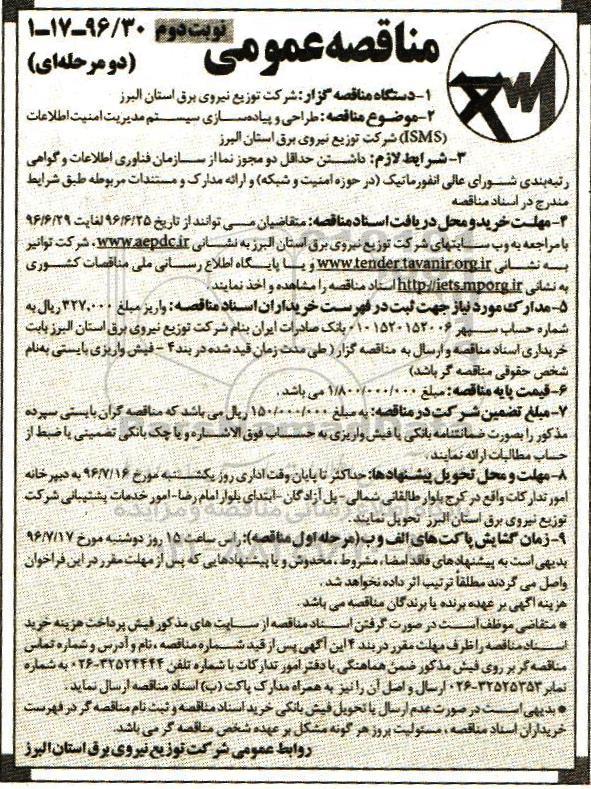 مناقصه عمومی
نوبت دوم
۹۶/۳۰-۱۷-۱
(دو مرحله‌ای)
۱-دستگاه مناقصه گزار: شرکت توزیع نیروی برق استان البرز
۲-موضوع مناقصه: طراحی و پیاده‌سازی سیستم مدیریت امنیت اطلاعات
(ISMS) شرکت توزیع نیروی برق استان البرز
۳-شرایط لازم: داشتن حداقل دو مجوز نما از سازمان فناوری اطلاعات و گواهی
رتبه‌بندی شورای عالی انفورماتیک (در حوزه امنیت و شبکه) و ارائه مدارک و مستندات مربوطه طبق شرایط
مندرج در اسناد مناقصه
۴-مهلت خرید و محل دریافت اسناد مناقصه: متقاضیان می توانند از تاریخ ۹۶/۶/۲۵ لغایت ۹۶/۶/۲۹
با مراجعه به وب سایتهای شرکت توزیع نیروی برق استان البرز به نشانی www.aepdc.ir، شرکت توانیر
به نشانی www.tender.tavanir.org.ir و یا پایگاه اطلاع رسانی ملی مناقصات کشوری
به نشانی http://iets.mporg.ir اسناد مناقصه را مشاهده و اخذ نمایند
۵-مدارک مورد نیاز جهت ثبت در فهرست خریداران اسناد مناقصه: واریز مبلغ ۳۲۷,۰۰۰ ریال به
شماره حساب سپهر ۰۱۰۱۵۲۰۱۵۲۰۰۶ بانک صادرات ایران بنام شرکت توزیع نیروی برق استان البرز بابت
خریداری اسناد مناقصه و ارسال به مناقصه گزار (طی مدت زمان قید شده در بند ۴ - فیش واریزی بایستی به‌نام
شخص حقوقی مناقصه گر باشد)
۶-قیمت پایه مناقصه: مبلغ ۱/۸۰۰/۰۰۰/۰۰۰ می باشد.
۷-مبلغ تضمین شرکت در مناقصه: به مبلغ ۱۵۰/۰۰۰/۰۰۰ ریال می باشد که مناقصه گران بایستی سپرده
مذکور را بصورت ضمانتنامه بانکی یا فیش واریزی به حساب فوق الاشاره و یا چک بانکی تضمینی یا ضبط از
حساب مطالبات ارائه نمایند.
۸-مهلت و محل تحویل پیشنهادها: حداکثر تا پایان وقت اداری روز یکشنبه مورخ ۹۶/۷/۱۶ به دبیرخانه
امور تدارکات واقع در کرج بلوار طالقانی شمالی-پل آزادگان -ابتدای بلوار امام رضا-امور خدمات پشتیبانی شرکت
توزیع نیروی برق استان البرز تحویل نمایند.
۹-زمان گشایش پاکت های الف و ب (مرحله اول مناقصه): راس ساعت ۱۵ روز دوشنبه مورخ ۹۶/۷/۱۷
بدیهی است به پیشنهادهای فاقد امضاء، مشروط، مخدوش و یا پیشنهادهایی که پس از مهلت مقرر در این فراخوان
واصل می گردند مطلقاً ترتیب اثر داده نخواهد شد.
هزینه آگهی بر عهده برنده یا برندگان مناقصه می باشد.
* متقاضی موظف است در صورت گرفتن اسناد مناقصه از سایت های مذکور فیش پرداخت هزینه خرید
اسناد مناقصه را ظرف مهلت مقرر در بند ۴ این آگهی پس از قید شماره مناقصه، نام و آدرس و شماره تماس
مناقصه گر بر روی فیش مذکور ضمن هماهنگی با دفتر امور تدارکات با شماره تلفن ۳۲۵۲۴۴۴۴-۰۲۶ به شماره
نمابر ۳۲۵۲۵۳۵۳-۰۲۶ ارسال و اصل آن را نیز به همراه مدارک پاکت (ب) اسناد مناقصه ارسال نماید.
* بدیهی است در صورت عدم ارسال یا تحویل فیش بانکی خرید اسناد مناقصه و ثبت نام مناقصه گر در فهرست
خریداران اسناد مناقصه، مسئولیت بروز هر گونه مشکل بر عهده شخص مناقصه گر می باشد.
روابط عمومی شرکت توزیع نیروی برق استان البرز